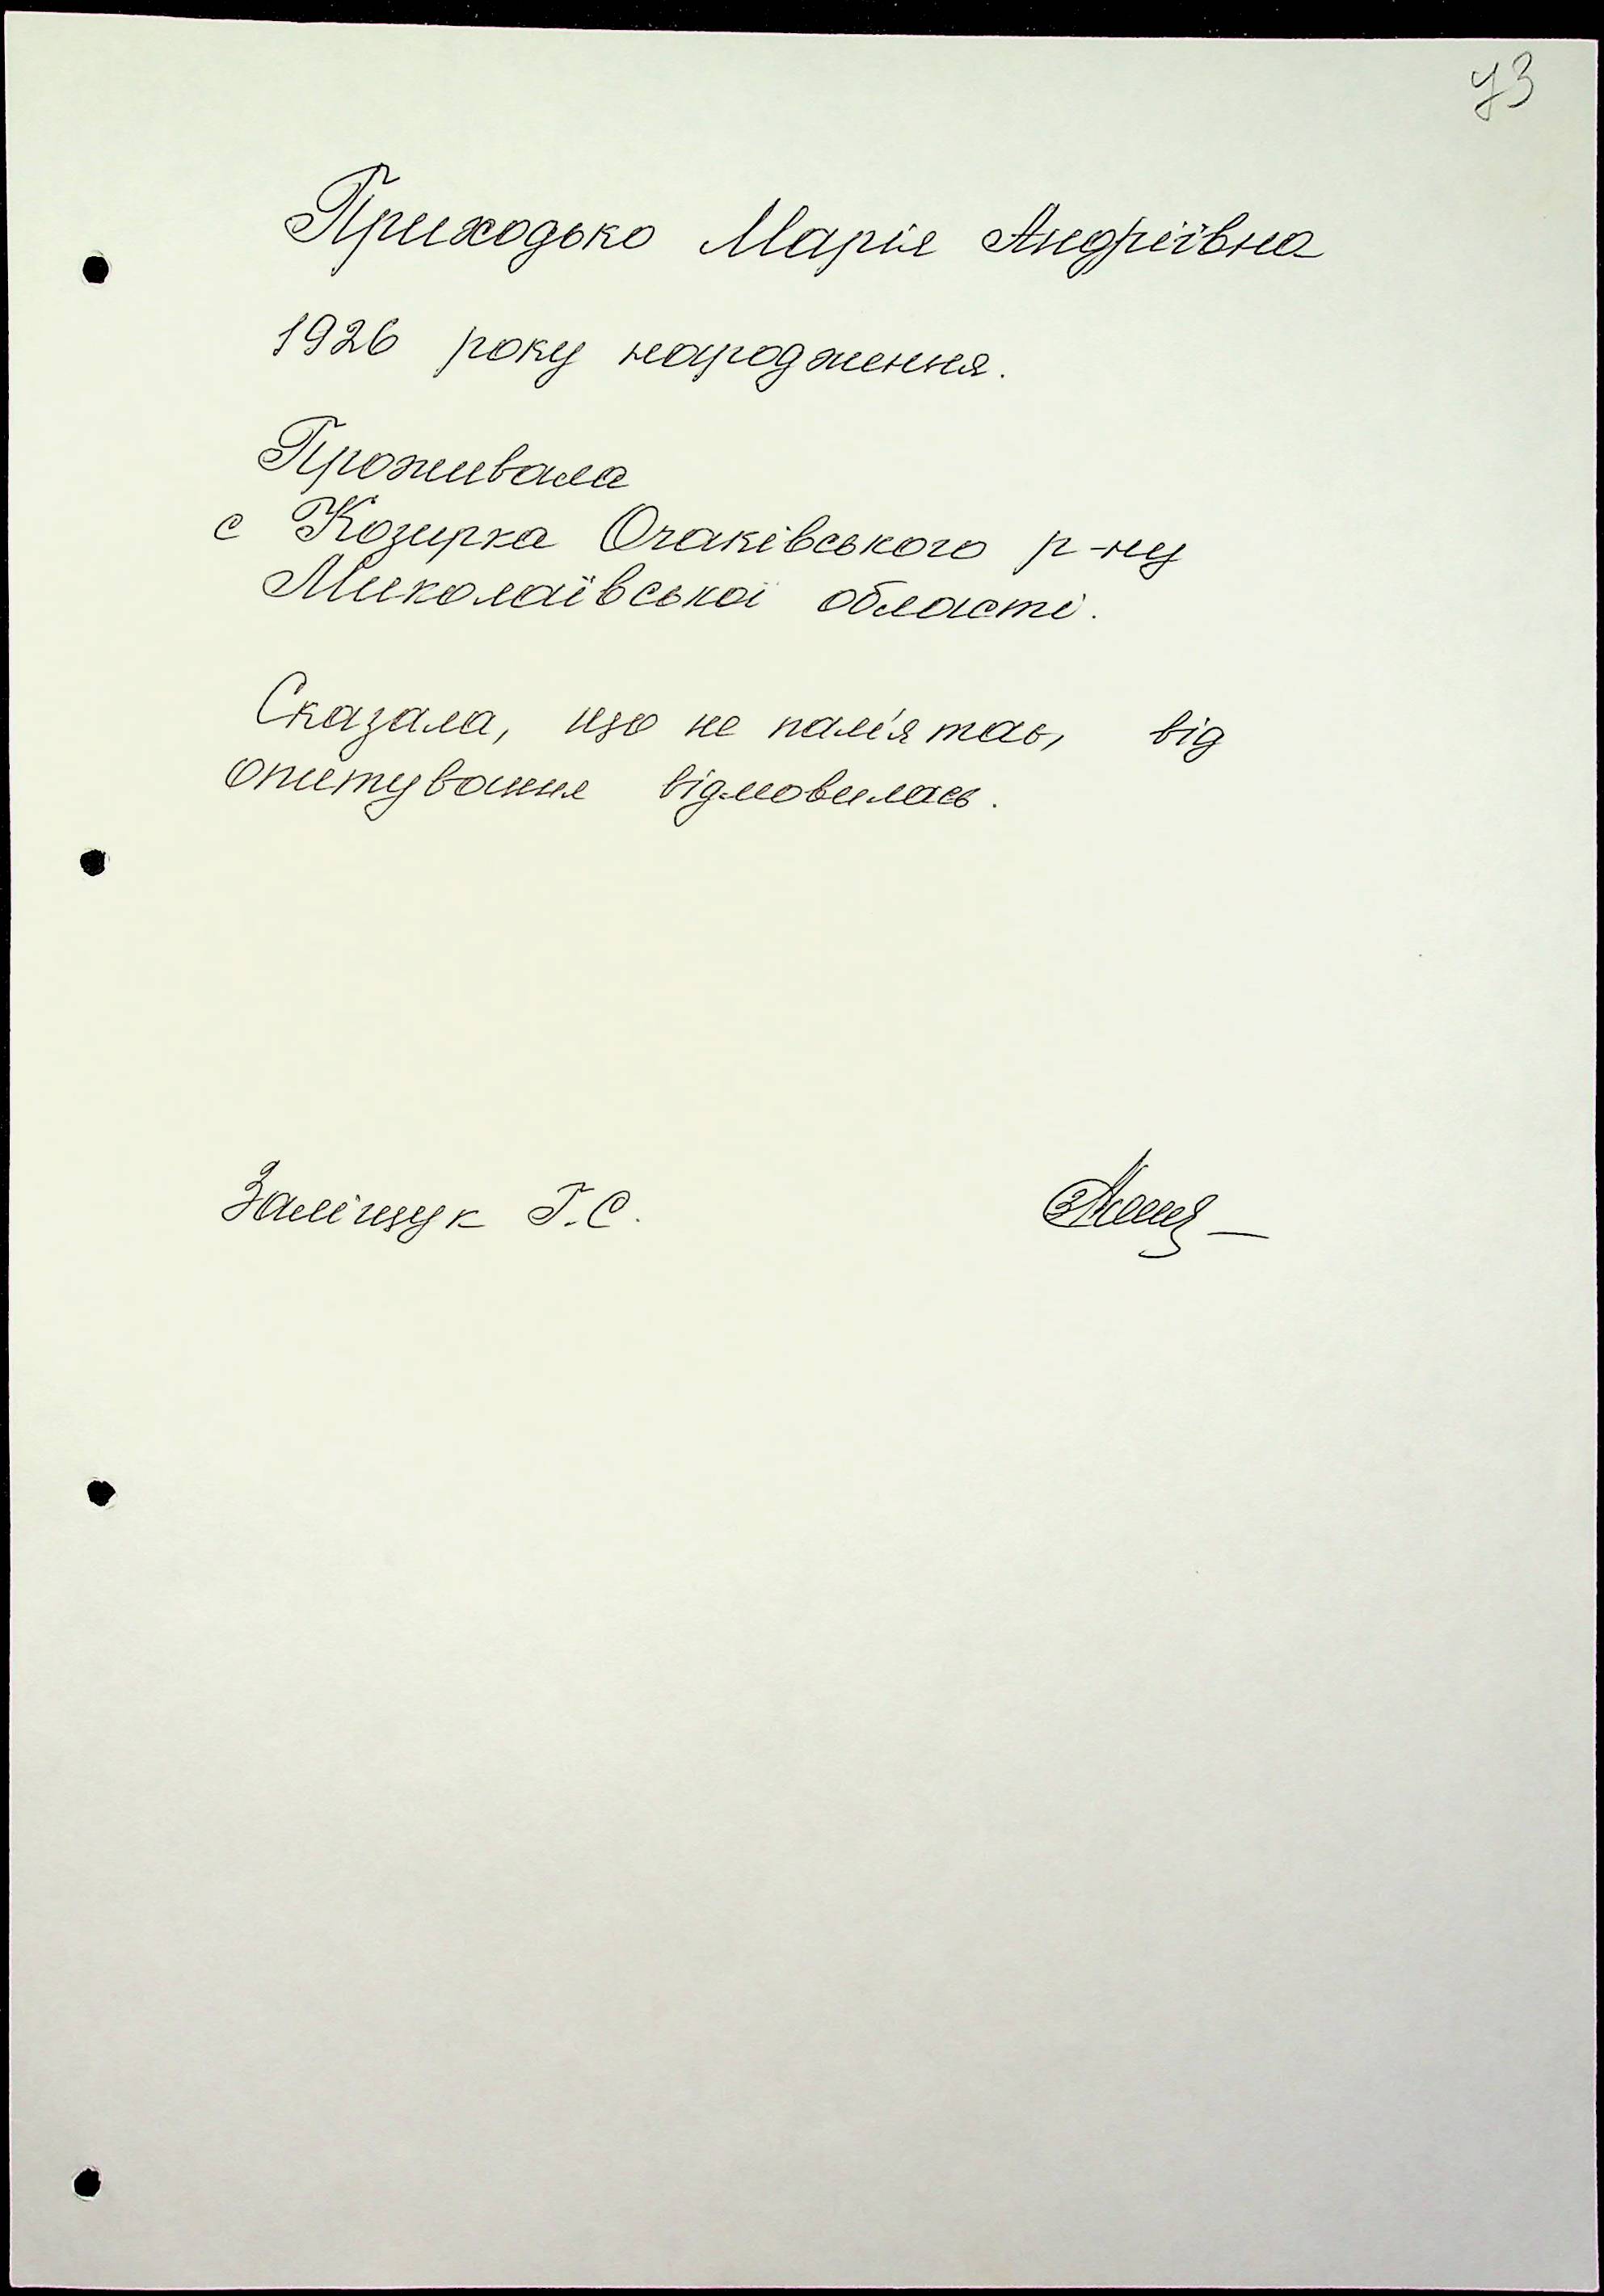 43
Приходько Марія Андріївна
1926 року народження.
Проживала
с Козирка Очаківського р-ну
Миколаївської області.
Сказала, що не пам'ятає, від
опитування відмовилась.
Заліщук Г.С.